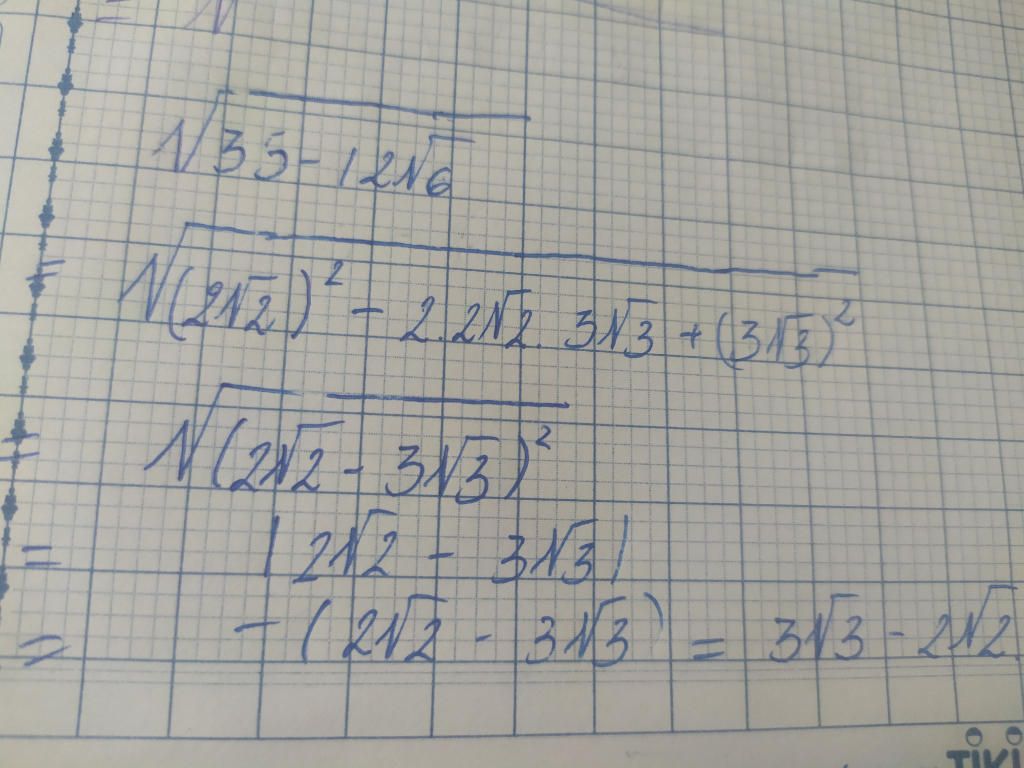 = √
√35 - 12√6
= √(2√2)² - 2.2√2.3√3 + (3√3)²
= √(2√2 - 3√3)²
= |2√2 - 3√3|
= -(2√2 - 3√3) = 3√3 - 2√2.
TIKI